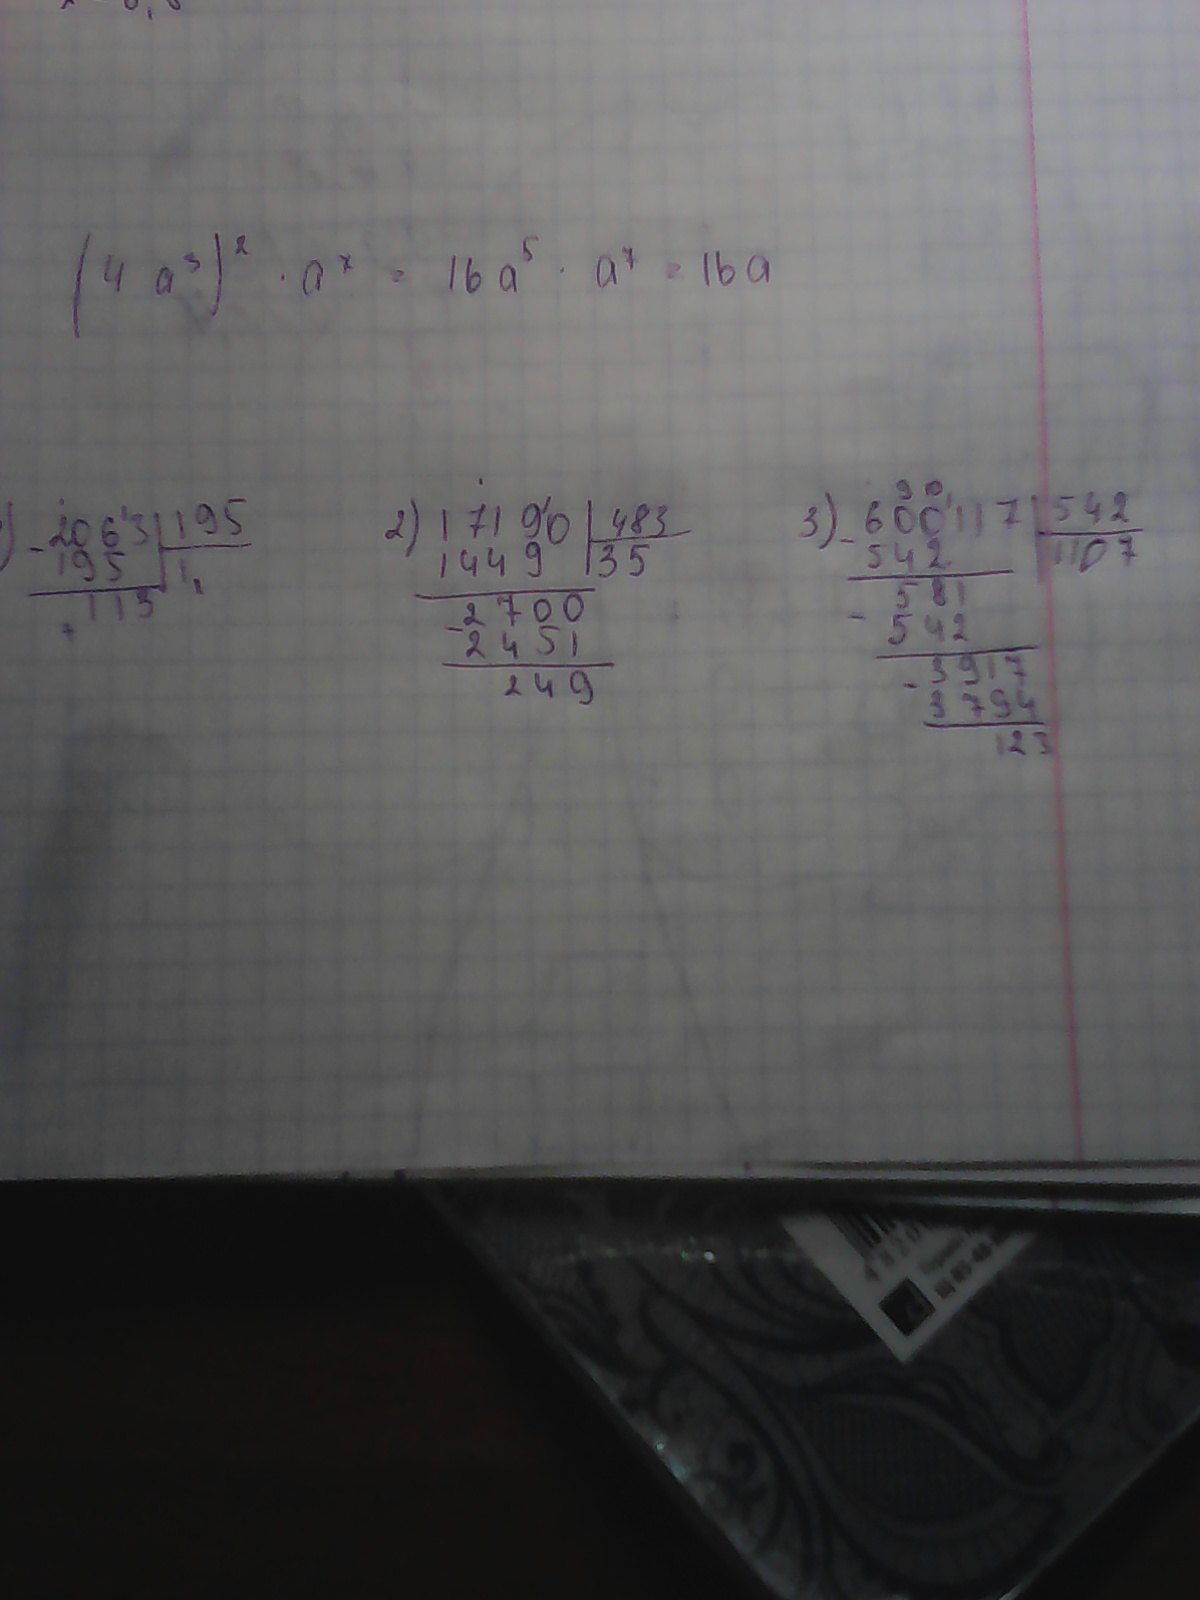 (4 a³)² · a⁷ = 16a⁵ · a⁷ = 16a
) - 2063 | 195
195 | 1
113
2) 17190 | 483
1449 | 35
- 2700
- 2451
249
3) - 600117 | 542
542 | 1107
581
- 542
- 3917
3794
123